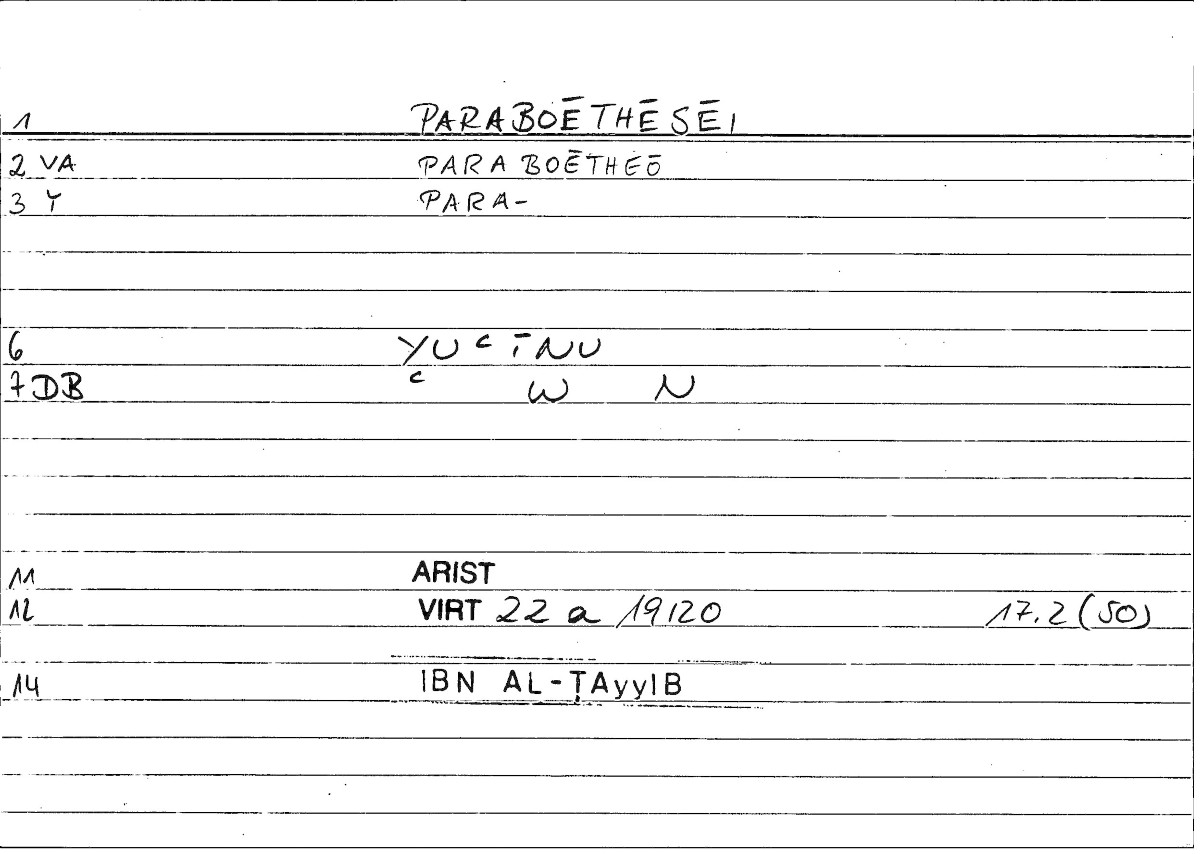 1 PARABOĒTHĒSĒI
2 VA PARABOĒTHEŌ
3 Y PARA-
6 YUʿĪNU
7 DB ʿ W N
11 ARIST
12 VIRT 22 a 19/20 17.2 (50)
14 IBN AL-ṬAyyIB